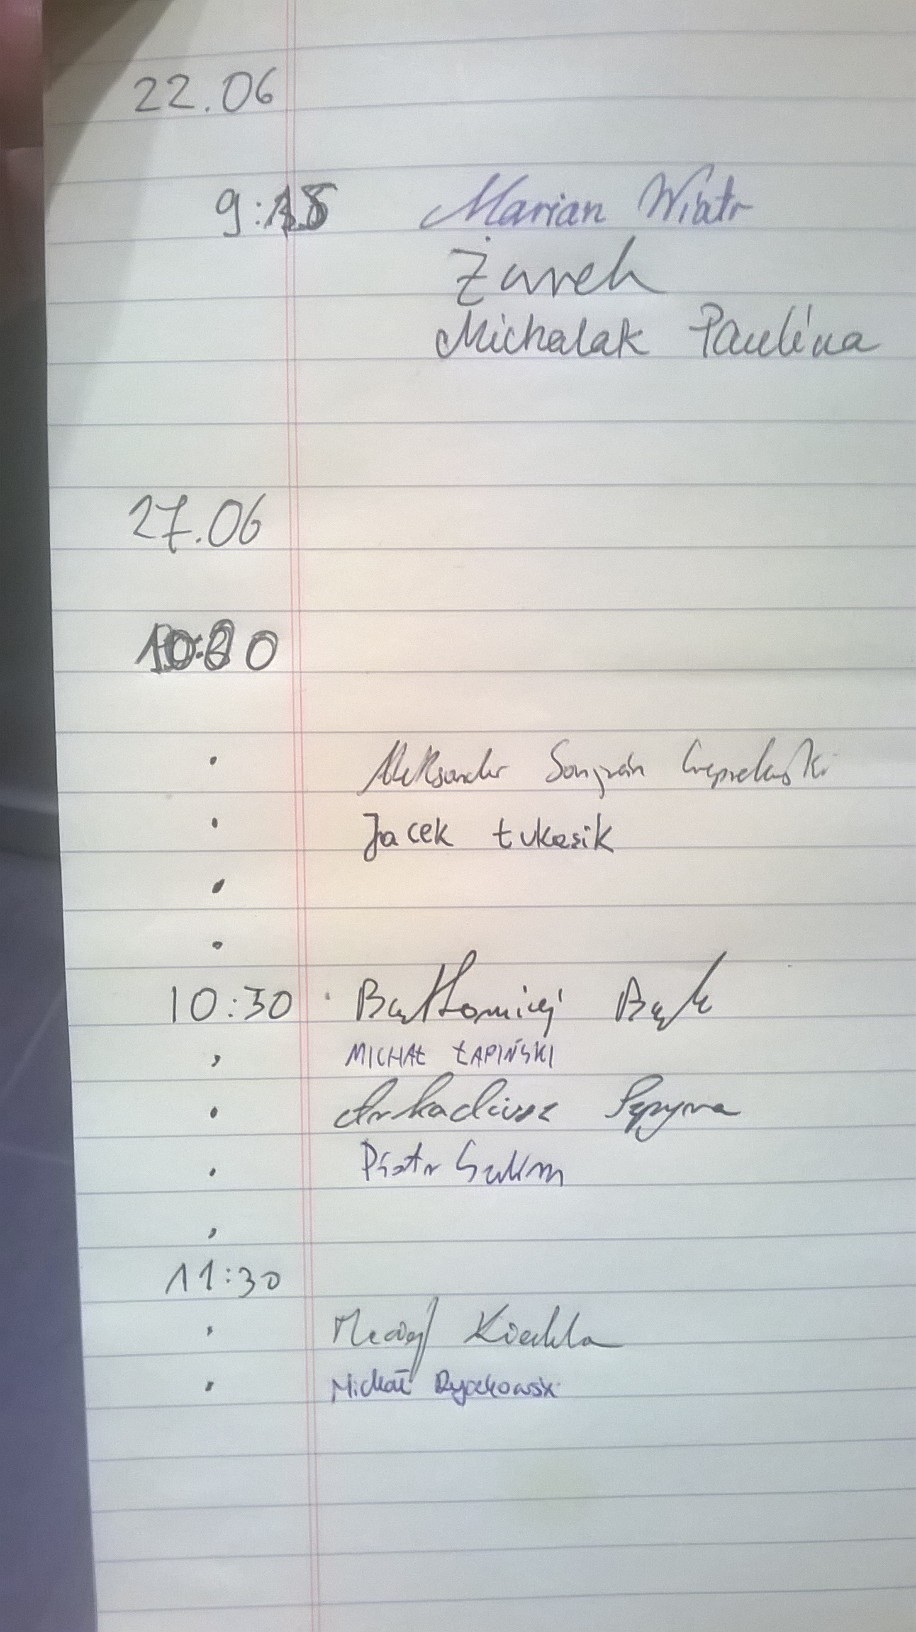 22.06
9:15 Marian Wiatr
Żurek
Michalak Paulina
27.06
10:00
Aleksander
Jacek Łukasik
10:30 Bartłomiej Bąk
MICHAŁ ŁAPIŃSKI
Arkadiusz
Piotr
11:30
Maciej
Michał